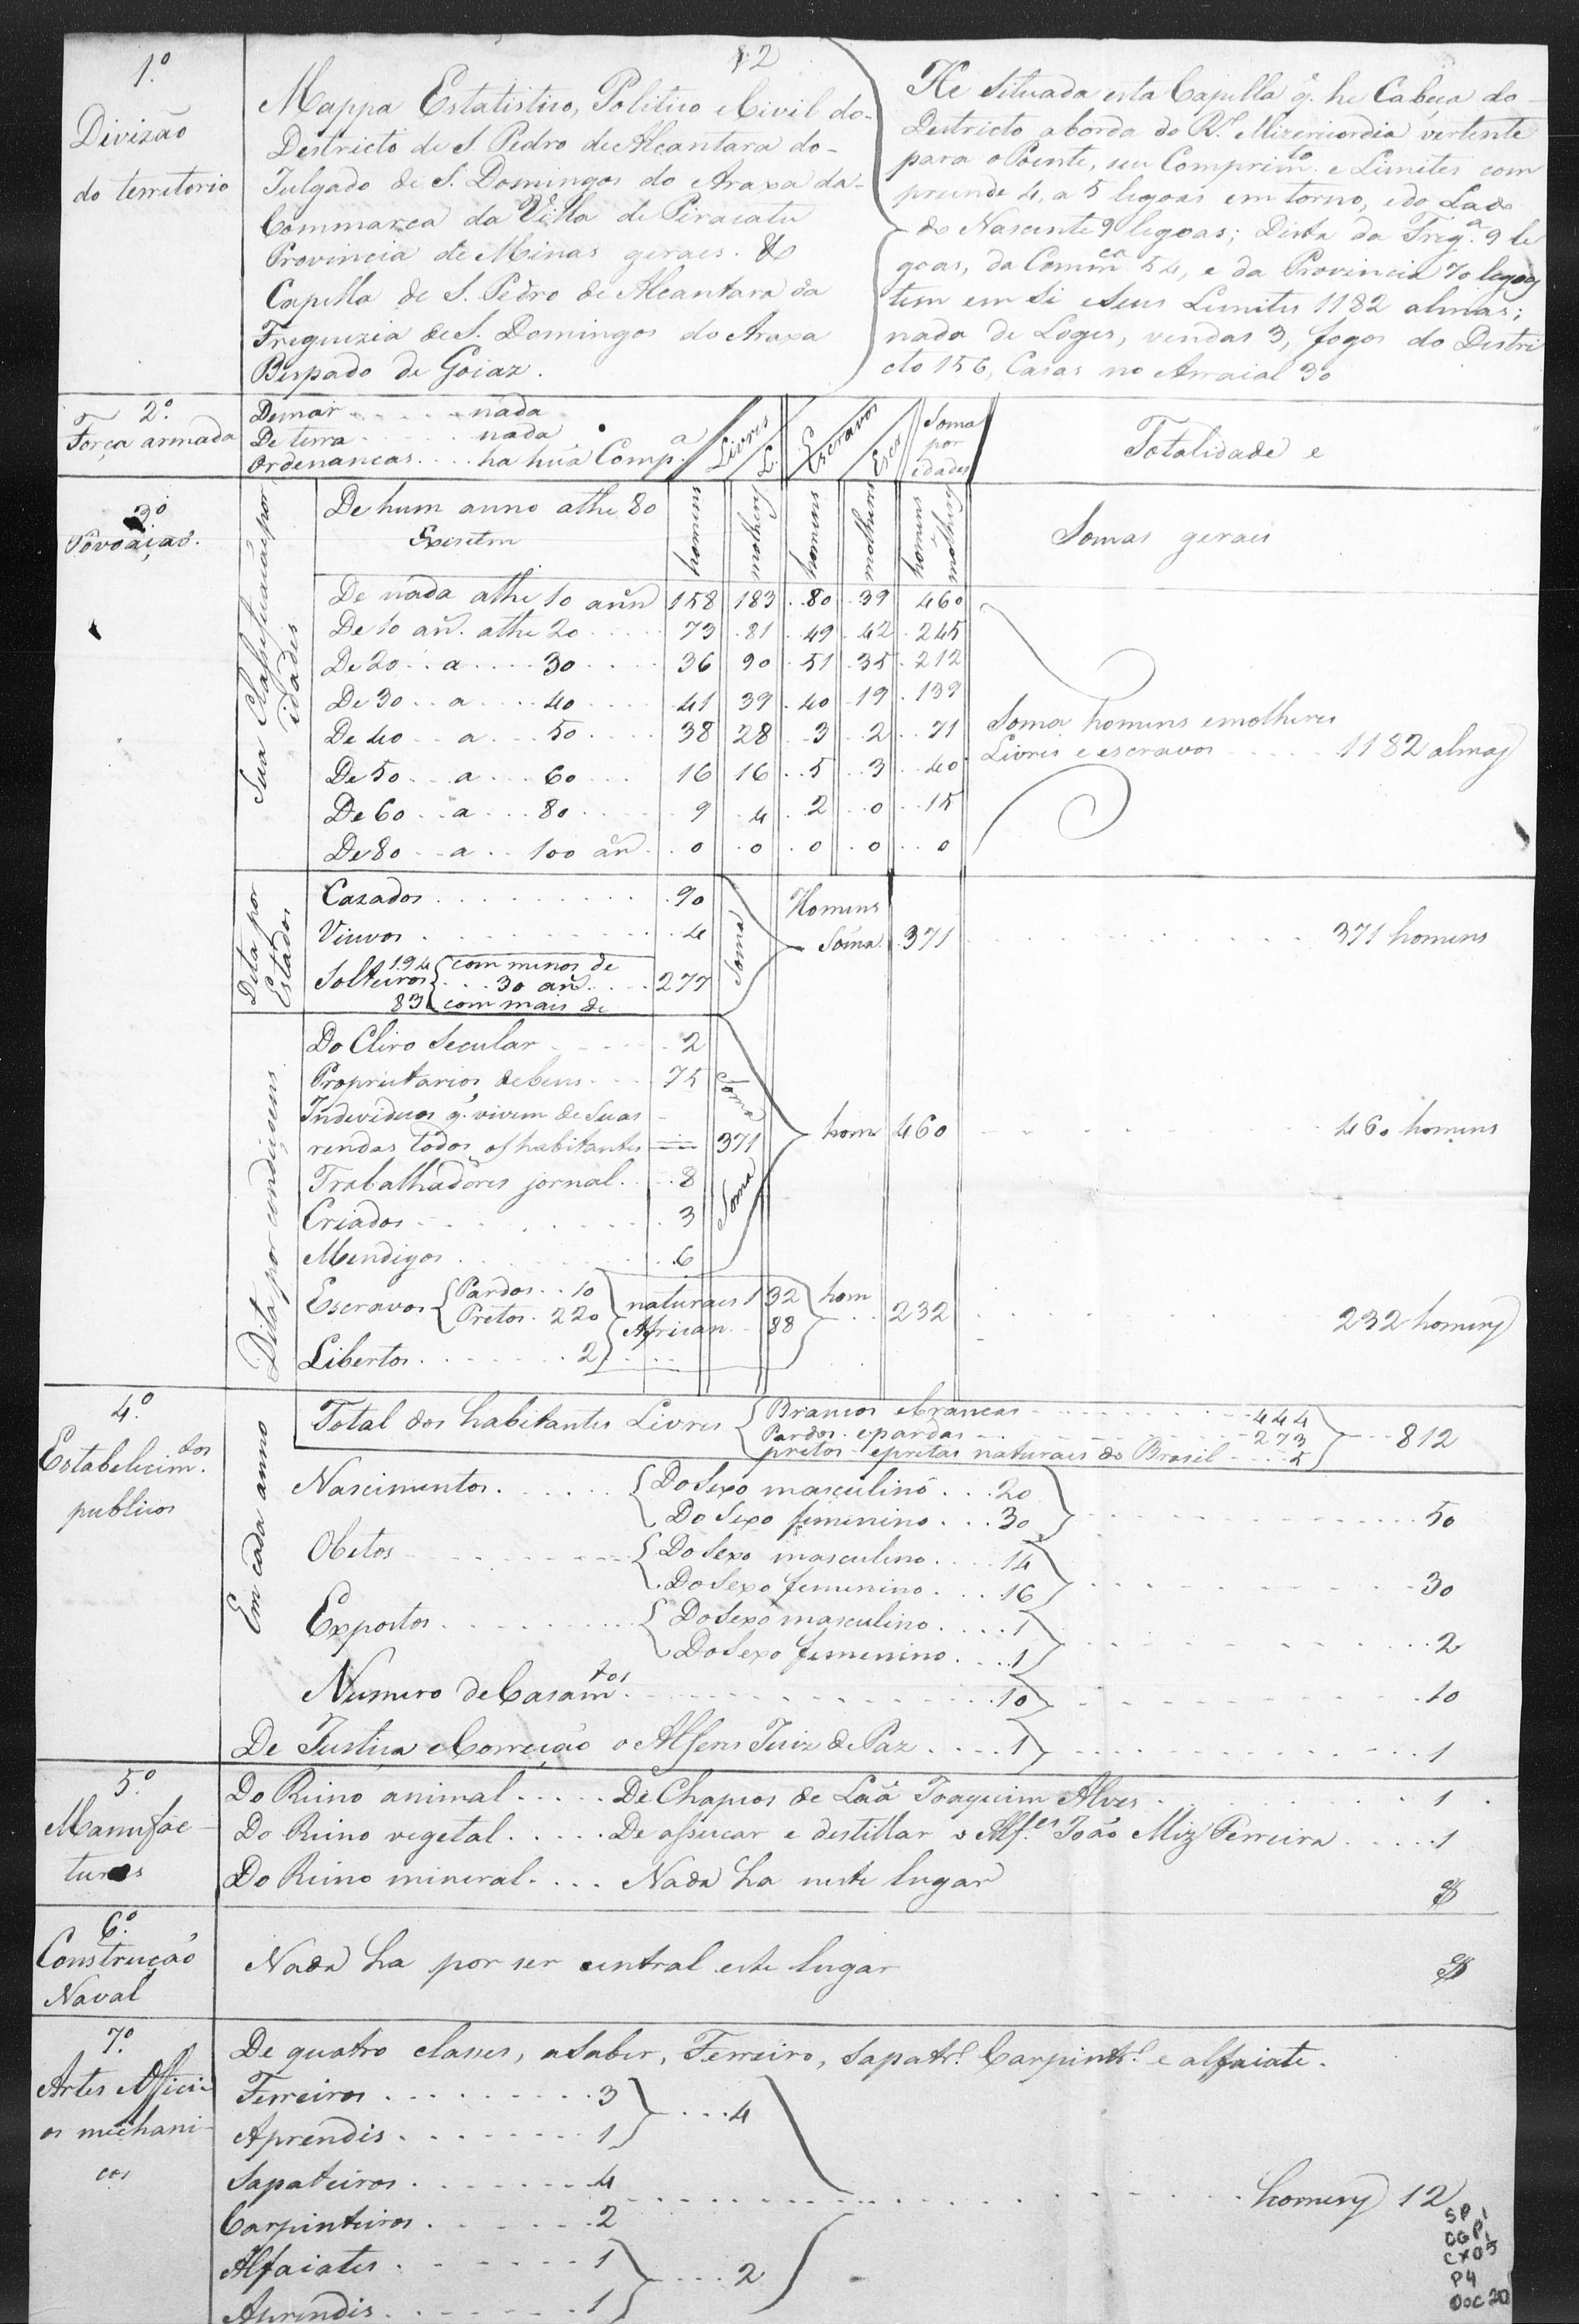 82
1.º
Divizão
do territorio
Mappa Estatistico, Politico e Civil do
Destricto de S. Pedro de Alcantara do
Julgado de S. Domingos do Araxa da
Commarca da Villa de Piracatu
Provincia de Minas geraes. &
Capella de S. Pedro de Alcantara da
Freguezia de S. Domingos do Araxa
Bispado de Goiaz.
He Situada esta Capella q. he Cabeça do
Destricto aborda do R.º Mizericordia vertente
para o Poente, seu Comprim.to e Limites com
prende 4, a 5 legoas em torno, e do Lado
do Nascente 9 legoas; Dista da Freg.a 9 le
goas, da Comm.ca 54, e da Provincia 70 legoas
tem em Si e Seus Limites 1182 almas;
nada de Loges, vendas 3, fogos do Destri
cto 156, Casas no Arraial 30
2.º
Força armada
Demar . . . . nada
De terra . . . . nada
Ordenancas . . . ha hũa Comp.a
Livres
L.
Escravos
Escr
Soma
por
idades
Totalidade e
3.º
Povoaçaõ.
Sua Classeficacaõ por
idades
De hum anno athe 80
Existem
homens
molheres
homens
molheres
homens
molheres
Somas geraes
De nada athe 10 añn 158 183 . 80 . 39 460
De 10 añ. athe 20 . . . . 73 . 81 . 49 . 42 . 245
De 20 . . a . . . . 30 . . . . 36 90 . 51 . 35 . 212
De 30 . . a . . . . 40 . . . . 41 39 . 40 . 19 . 139
De 40 . . a . . . 50 . . . . 38 28 . . 3 . . 2 . . 71
De 50 . . a . . . 60 . . . 16 16 . . 5 . . 3 . . 40
De 60 . . a . . . 80 . . . . 9 . 4 . 2 . . 0 . . 15
De 80 . . a . . 100 añ . . 0 . 0 . 0 . 0 . . 0
Soma homens e molheres
Livres e escravos . . . . 1182 almas
Dita por
Estados
Cazados . . . . . . . . . 90
Viuvos . . . . . . . . . . 4
Solteiros 194 com menos de
. . . 30 añ . . . 277
83 com mais de
Soma
Homens
Soma . 371 . . . . . . . . . 371 homens
Dita por condiçoens
Do Cliro Secular . . . . . 2
Proprietarios de bens . . . 75
Individuos q. vivem de Suas
rendas todos os habitantes 371
Trabalhadores jornal . . . 8
Criados . . . . . . . . . 3
Mendigos . . . . . . . . 6
Soma
Soma
hom 460 . . . . . . . . . 460 homens
Escravos Pardos . . 10
Pretos . 220
naturaes 132
African . . 88
hom
. . 232 . . . . . . . . 232 homens
Libertos . . . . . . . . 2
4.º
Estabelecim.tos
publicos
Em cada anno
Total dos habitantes Livres Brancos e brancas . . . . . . 444
Pardos e pardas . . . . . . 273
pretos e pretas naturaes do Brasil . . . . 5
. . . 812
Nascimentos . . . . . . Do Sexo masculino . . . 20
Do Sexo femenino . . . 30
. . . . . . . . . 50
Obetos . . . . . . . . Do Sexo masculino . . . . 14
Do Sexo femenino . . . 16
. . . . . . . . . 30
Expostos . . . . . . . Do Sexo masculino . . . . 1
Do Sexo femenino . . . . 1
. . . . . . . . . 2
Numero de Casam.tos . . . . . . . . . . 10 . . . . . . . . . 10
De Justiça e Correição o Alferes Juiz de Paz . . . . 1 . . . . . . . . . 1
5.º
Manufac
turas
Do Reino animal . . . . . De Chapeos de Laã Joaquim Alves . . . . . . . 1
Do Reino vegetal . . . . . De assucar e destillar o Alf.es João Miz Perreira . . . . . 1
Do Reino mineral . . . . Nada ha neste lugar
6.º
Construção
Naval
Nada ha por ser central este lugar
7.º
Artes e Offici
os mechani
cos
De quatro classes, asaber, Ferreiro, Sapatr.º Carpintr.º e alfaiate.
Ferreiros . . . . . . . . . 3
. . . 4
Aprendis . . . . . . . . 1
Sapateiros . . . . . . . . 4
. . . . . . . . . homens 12
Carpinteiros . . . . . . . 2
Alfaiates . . . . . . . 1
. . . . 2
Aprendis . . . . . . . . 1
SP 1
CGP 1
CX 05
P4
DOC 20